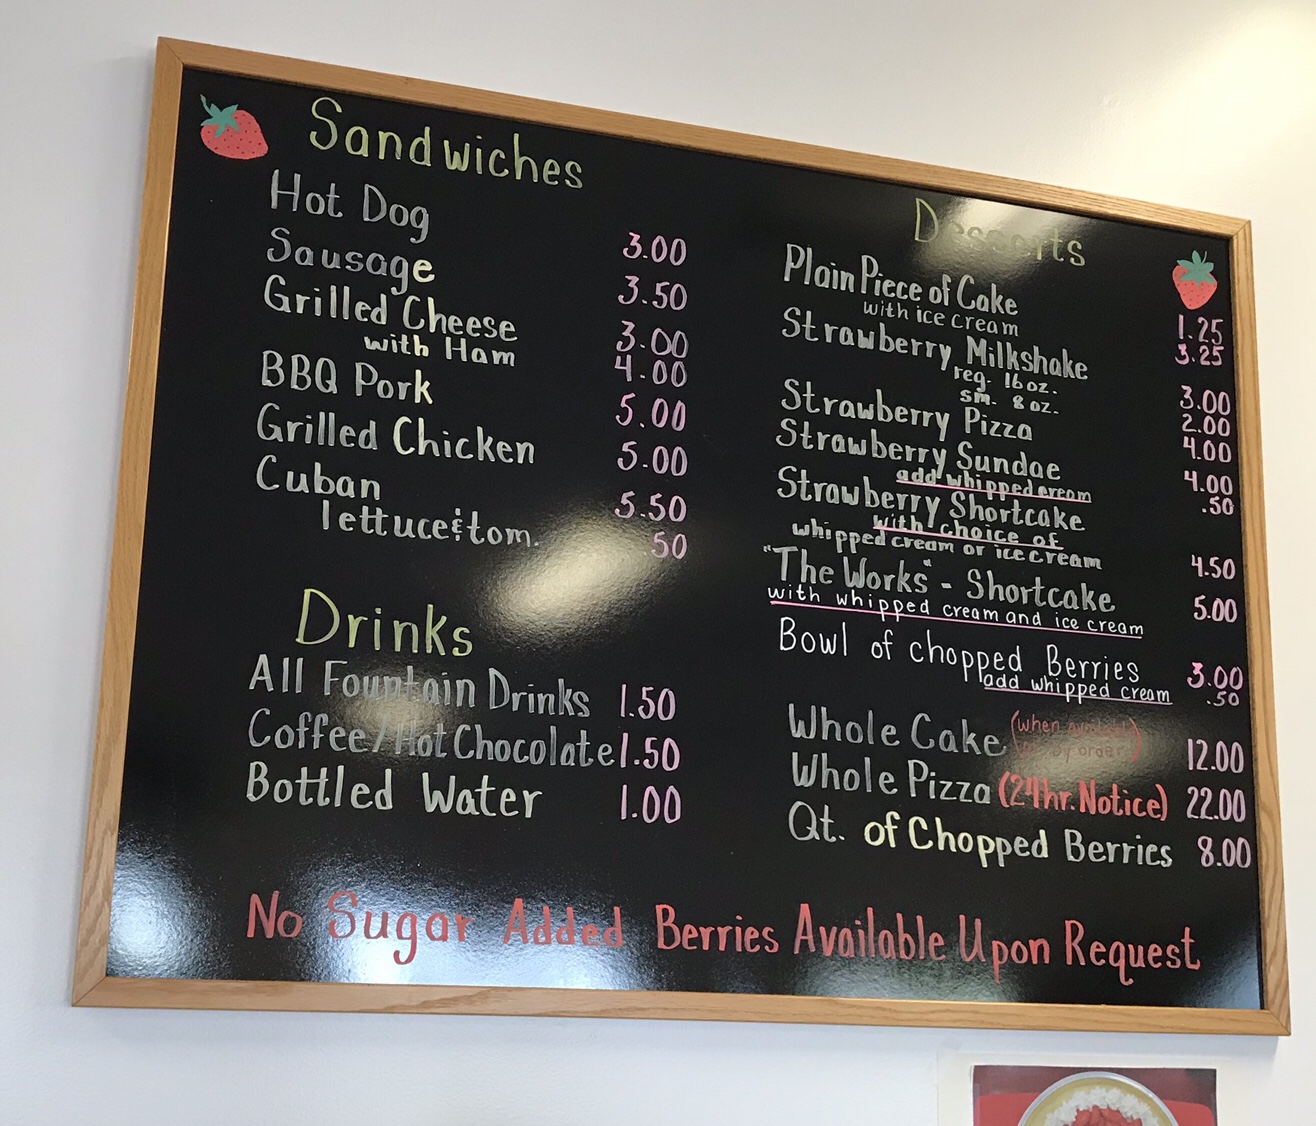 Sandwiches
Hot Dog 3.00
Sausage 3.50
Grilled Cheese 3.00
with Ham 4.00
BBQ Pork 5.00
Grilled Chicken 5.00
Cuban 5.50
lettuce & tom. .50
Drinks
All Fountain Drinks 1.50
Coffee/Hot Chocolate 1.50
Bottled Water 1.00
Desserts
Plain Piece of Cake 1.25
with ice cream 3.25
Strawberry Milkshake
reg. 16oz. 3.00
sm. 8oz. 2.00
Strawberry Pizza 4.00
Strawberry Sundae 4.00
add whipped cream .50
Strawberry Shortcake
with choice of
whipped cream or ice cream 4.50
"The Works" - Shortcake 5.00
with whipped cream and ice cream
Bowl of chopped Berries 3.00
add whipped cream .50
Whole Cake (when available 12.00
or by order)
Whole Pizza (24hr. Notice) 22.00
Qt. of Chopped Berries 8.00
No Sugar Added Berries Available Upon Request